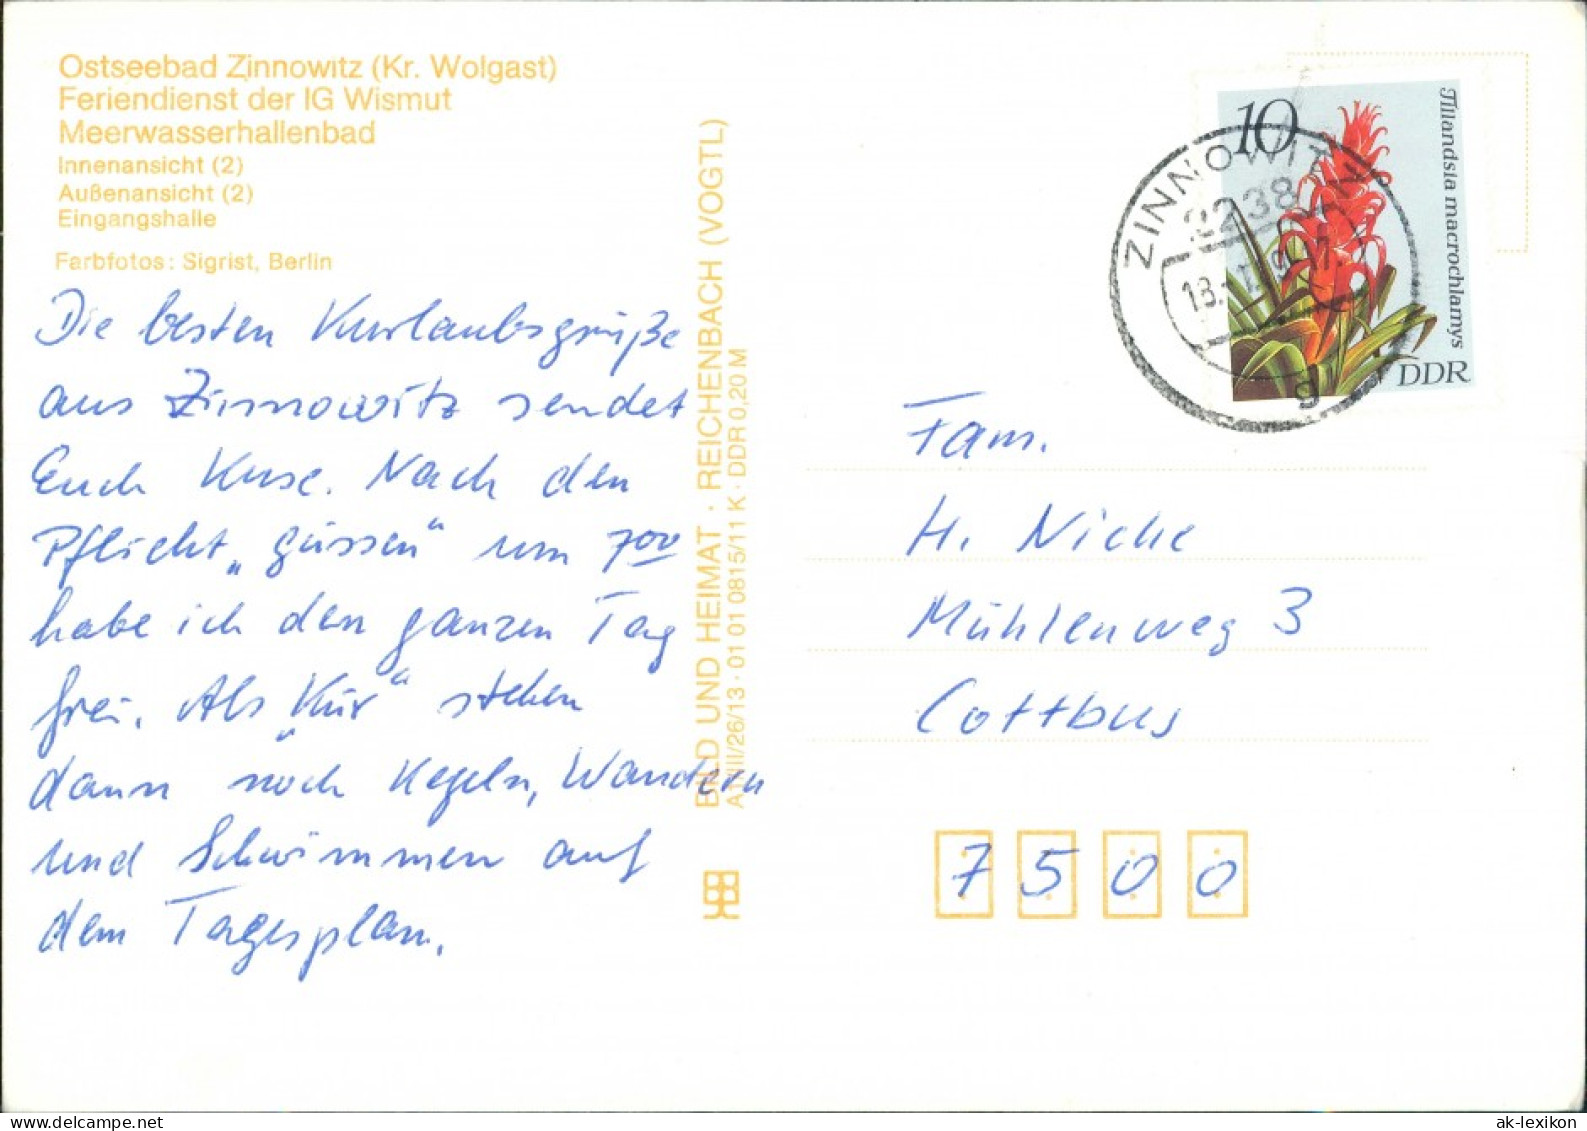 Ostseebad Zinnowitz (Kr. Wolgast)
Feriendienst der IG Wismut
Meerwasserhallenbad
Innenansicht (2)
Außenansicht (2)
Eingangshalle
Farbfotos: Sigrist, Berlin
Die besten Kurlaubsgrüße
aus Zinnowitz sendet
Euch Kuse. Nach den
Pflicht „güssen“ um 700
habe ich den ganzen Tag
frei. Als „Kür“ stehen
dann noch Kegeln, Wandern
und Schwimmen auf
dem Tagesplan.
BILD UND HEIMAT · REICHENBACH (VOGTL)
A1/III/26/13 · 01 01 0815/11 K · DDR 0,20 M
10
Tillandsia macrochlamys
DDR
ZINNOWIT
2238
18.
g
Fam.
H. Niche
Mühlenweg 3
Cottbus
7 5 0 0
www.delcampe.net
ak-lexikon